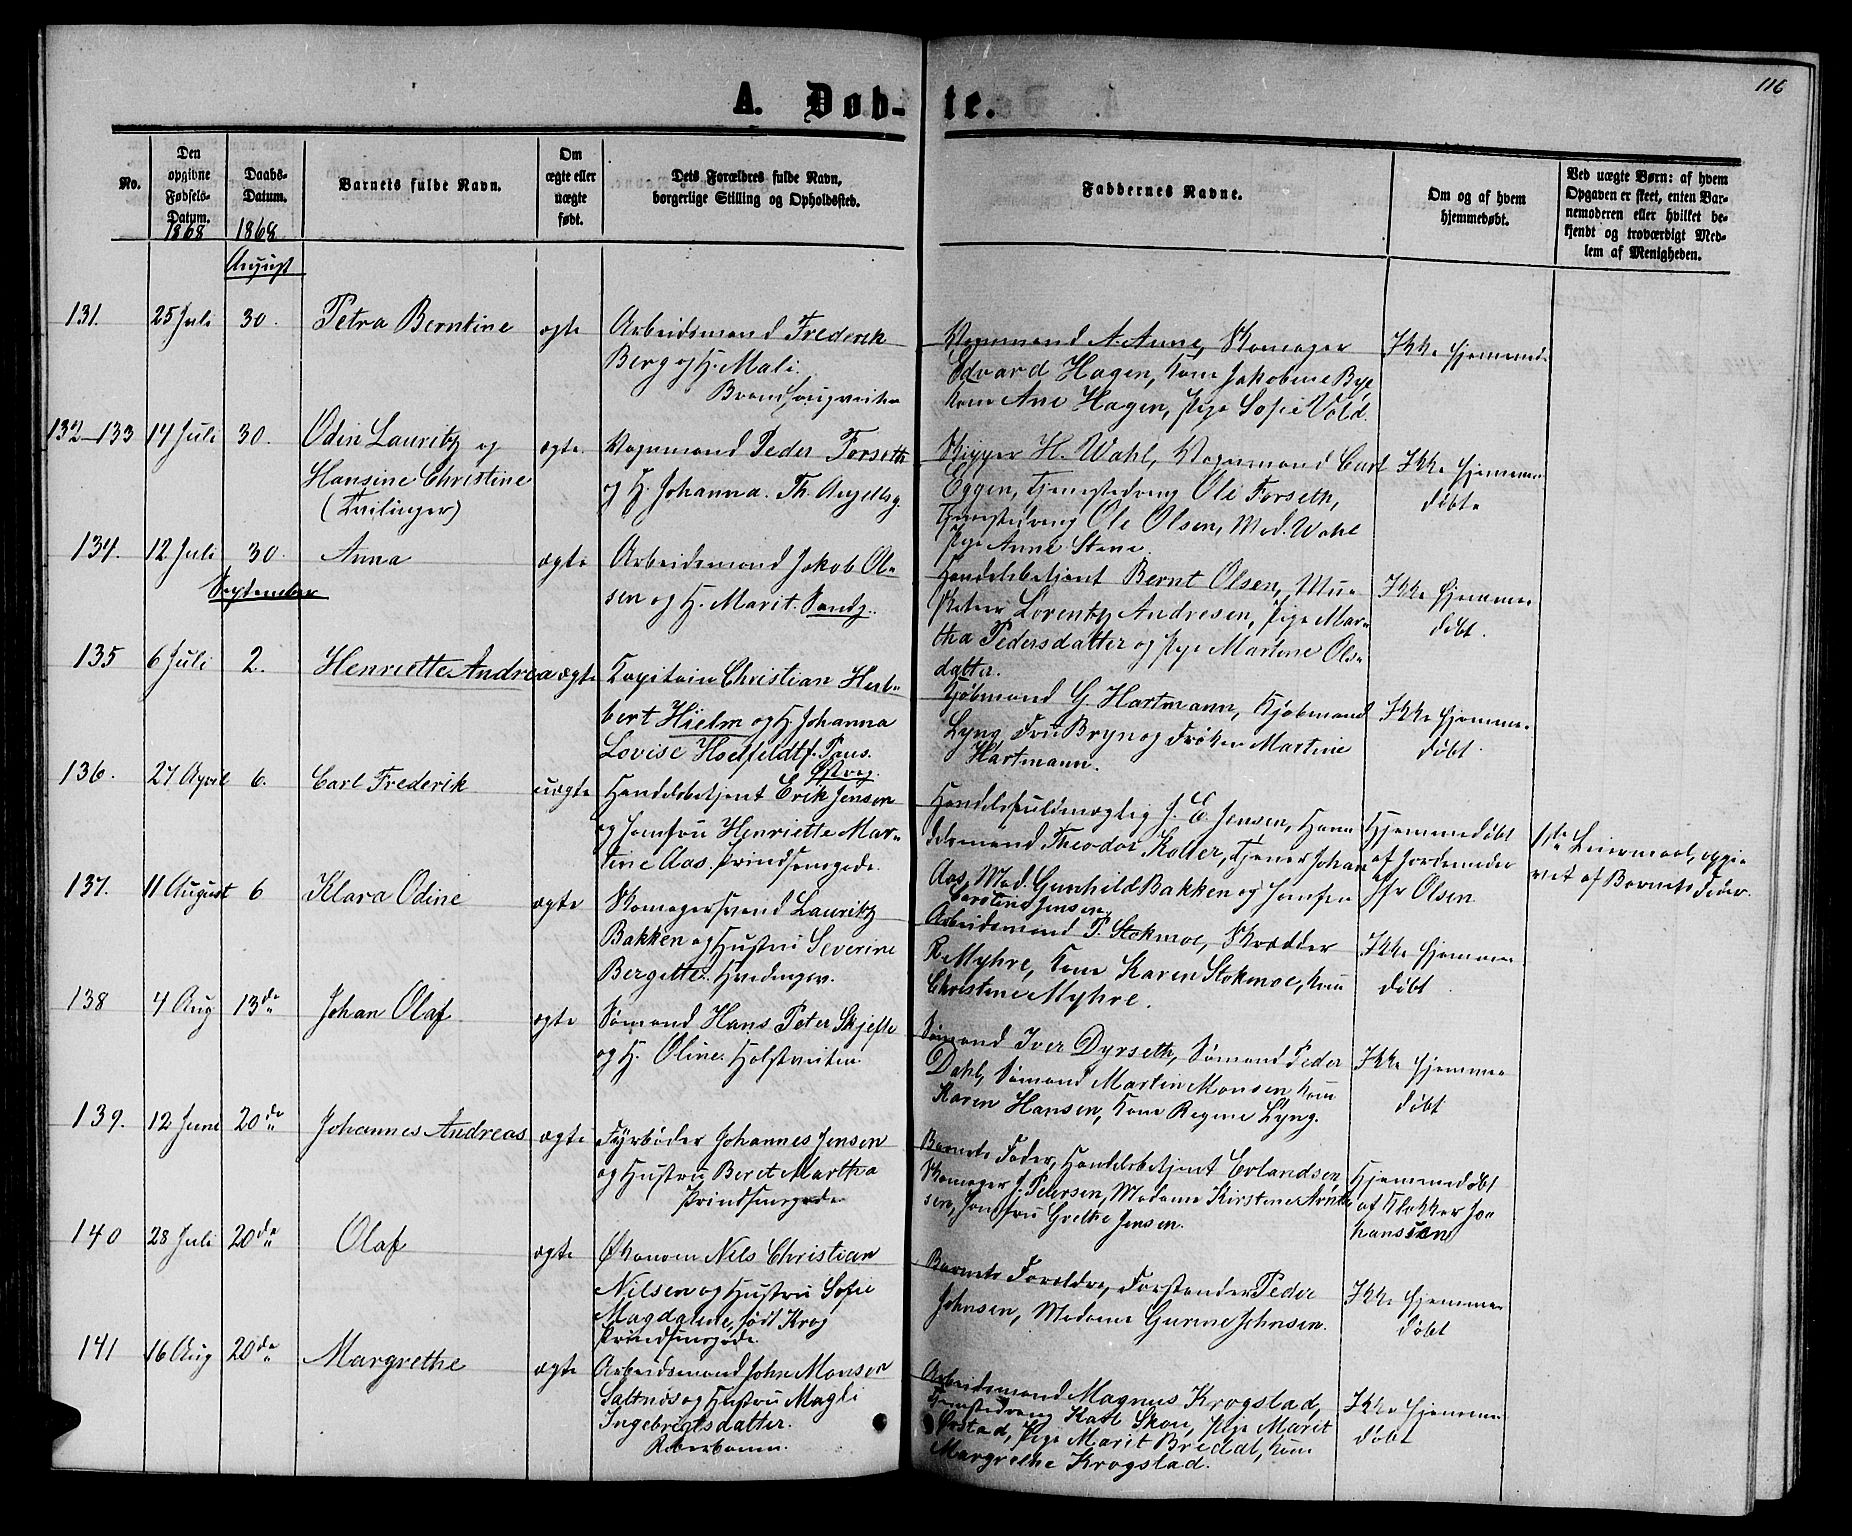 116
A. Døb-te.
No.
Den opgivne Fødsels-Datum.
Daabs-Datum.
Barnets fulde Navn.
Om ægte eller uægte født.
Dets Forældres fulde Navn, borgerlige Stilling og Opholdssted.
Faddernes Navne.
Om og af hvem hjemmedøbt.
Ved uægte Børn: af hvem Opgaven er skeet, enten Barnemoderen eller hvilket bekjendt og troværdigt Medlem af Menigheden.
1868 1868
August
131. 25 Juli 30. Petra Berntine ægte
Arbeidsmand Frederik
Berg og H. Mali.
Vognmand A. Aune, Skomager
Edvard Hagen, Kone Jakobine Bye
Kone Ane Hagen, Pige Sofie Vold.
Ikke hjemmed.
132-133 14 Juli 30. Odin Lauritz og
Hansine Christine
(Tvilinger)
ægte.
Vognmand Peder Forseth
og H. Johanna. Th. Angellsg.
Skipper H. Wahl, Vognmand Carl
Eggen, Tjenestedreng Ole Forseth,
Tjenestedreng Ole Olsen, Mad. Wahl
Pige Anne Stene.
Ikke hjemme-
døbte
134. 12 Juli 30. Anna ægte
Arbeidsmand Jakob Ol-
sen og H. Marit. Sandg.
Handelsbetjent Bernt Olsen, Mus-
keteer Lorentz Andresen, Pige Mar-
tha Pedersdatter og Pige Martine Ols-
datter.
Ikke hjemme-
døbt.
September
135 6 Juli 2. Henriette Andrea ægte
Capitain Christian Herb-
bert Hielm og H. Johanna
Lovise Hoffeldt f. Paus.
Kjøbmand G. Hartmann, Kjøbmand
Lyng, Fru Bryn og Frøken Martine
Hartmann.
Ikke hjemme-
døbt.
136. 27 April 6. Carl Frederik uægte
Handelsbetjent Erik Jensen
og Jomfru Henriette Mar-
tine Aas. Prindsensgade.
Handelsfuldmægtig J. E. Jensen, Han-
delsmand Theodor Kolter, Tjener Johan
Aas, Mad. Gunhild Bakken og Jomfru
Caroline Jensen.
Hjemmedøbt
af Jordemoder
Olsen
1ste Leiermaal, opgi-
vet af Barnets Fader.
137. 11 August 6 Klara Odine ægte
Skomagersvend Lauritz
Bakken og Hustru Severine
Bergette.
Arbeidsmand P. Stokmoe, Skrædder
R. Myhre, Kone Karen Stokmoe, Kone
Christine Myhre.
Ikke hjemme-
døbt.
138 4 Aug 13de Johan Olaf ægte
Sømand Hans Peter Skjefte
og H. Oline. Holstveiten.
Sømand Iver Dyrseth, Sømand Peder
Dahl, Sømand Martin Monsen, Kone
Karen Hansen, Kone Regine Lyng.
Ikke hjemme-
døbt
139. 12 Juni 20de Johannes Andreas ægte
Fyrbøder Johannes Jensen
og Hustru Beret Martha
Prindsensgade
Barnets Fader, Handelsbetjent Erlandsen,
Skomager J. Petersen, Madame Kirstine Arnt-
sen, Jomfru Grethe Jensen.
Hjemmedøbt
af Klokker Jo-
hanssen
140 28 Juli 20de Olaf ægte
Økonom Nils Christian
Nilsen og Hustru Sofie
Magdalene, født Krog
Prindsensgade.
Barnets Forældre, Forstander Peder
Johnsen, Madame Gurine Johnsen.
Ikke hjemme-
døbt
141 16 Aug 20de Margrethe ægte
Arbeidsmand John Monsen
Saltnes og Hustru Magli
Ingebregtsdatter.
Arbeidsmand Magnus Krogstad,
Tjenestedreng Karl Skou, Pige Marit
Pige Marit Bredal, Kone
Margrethe Krogstad.
Ikke hjemme-
døbt